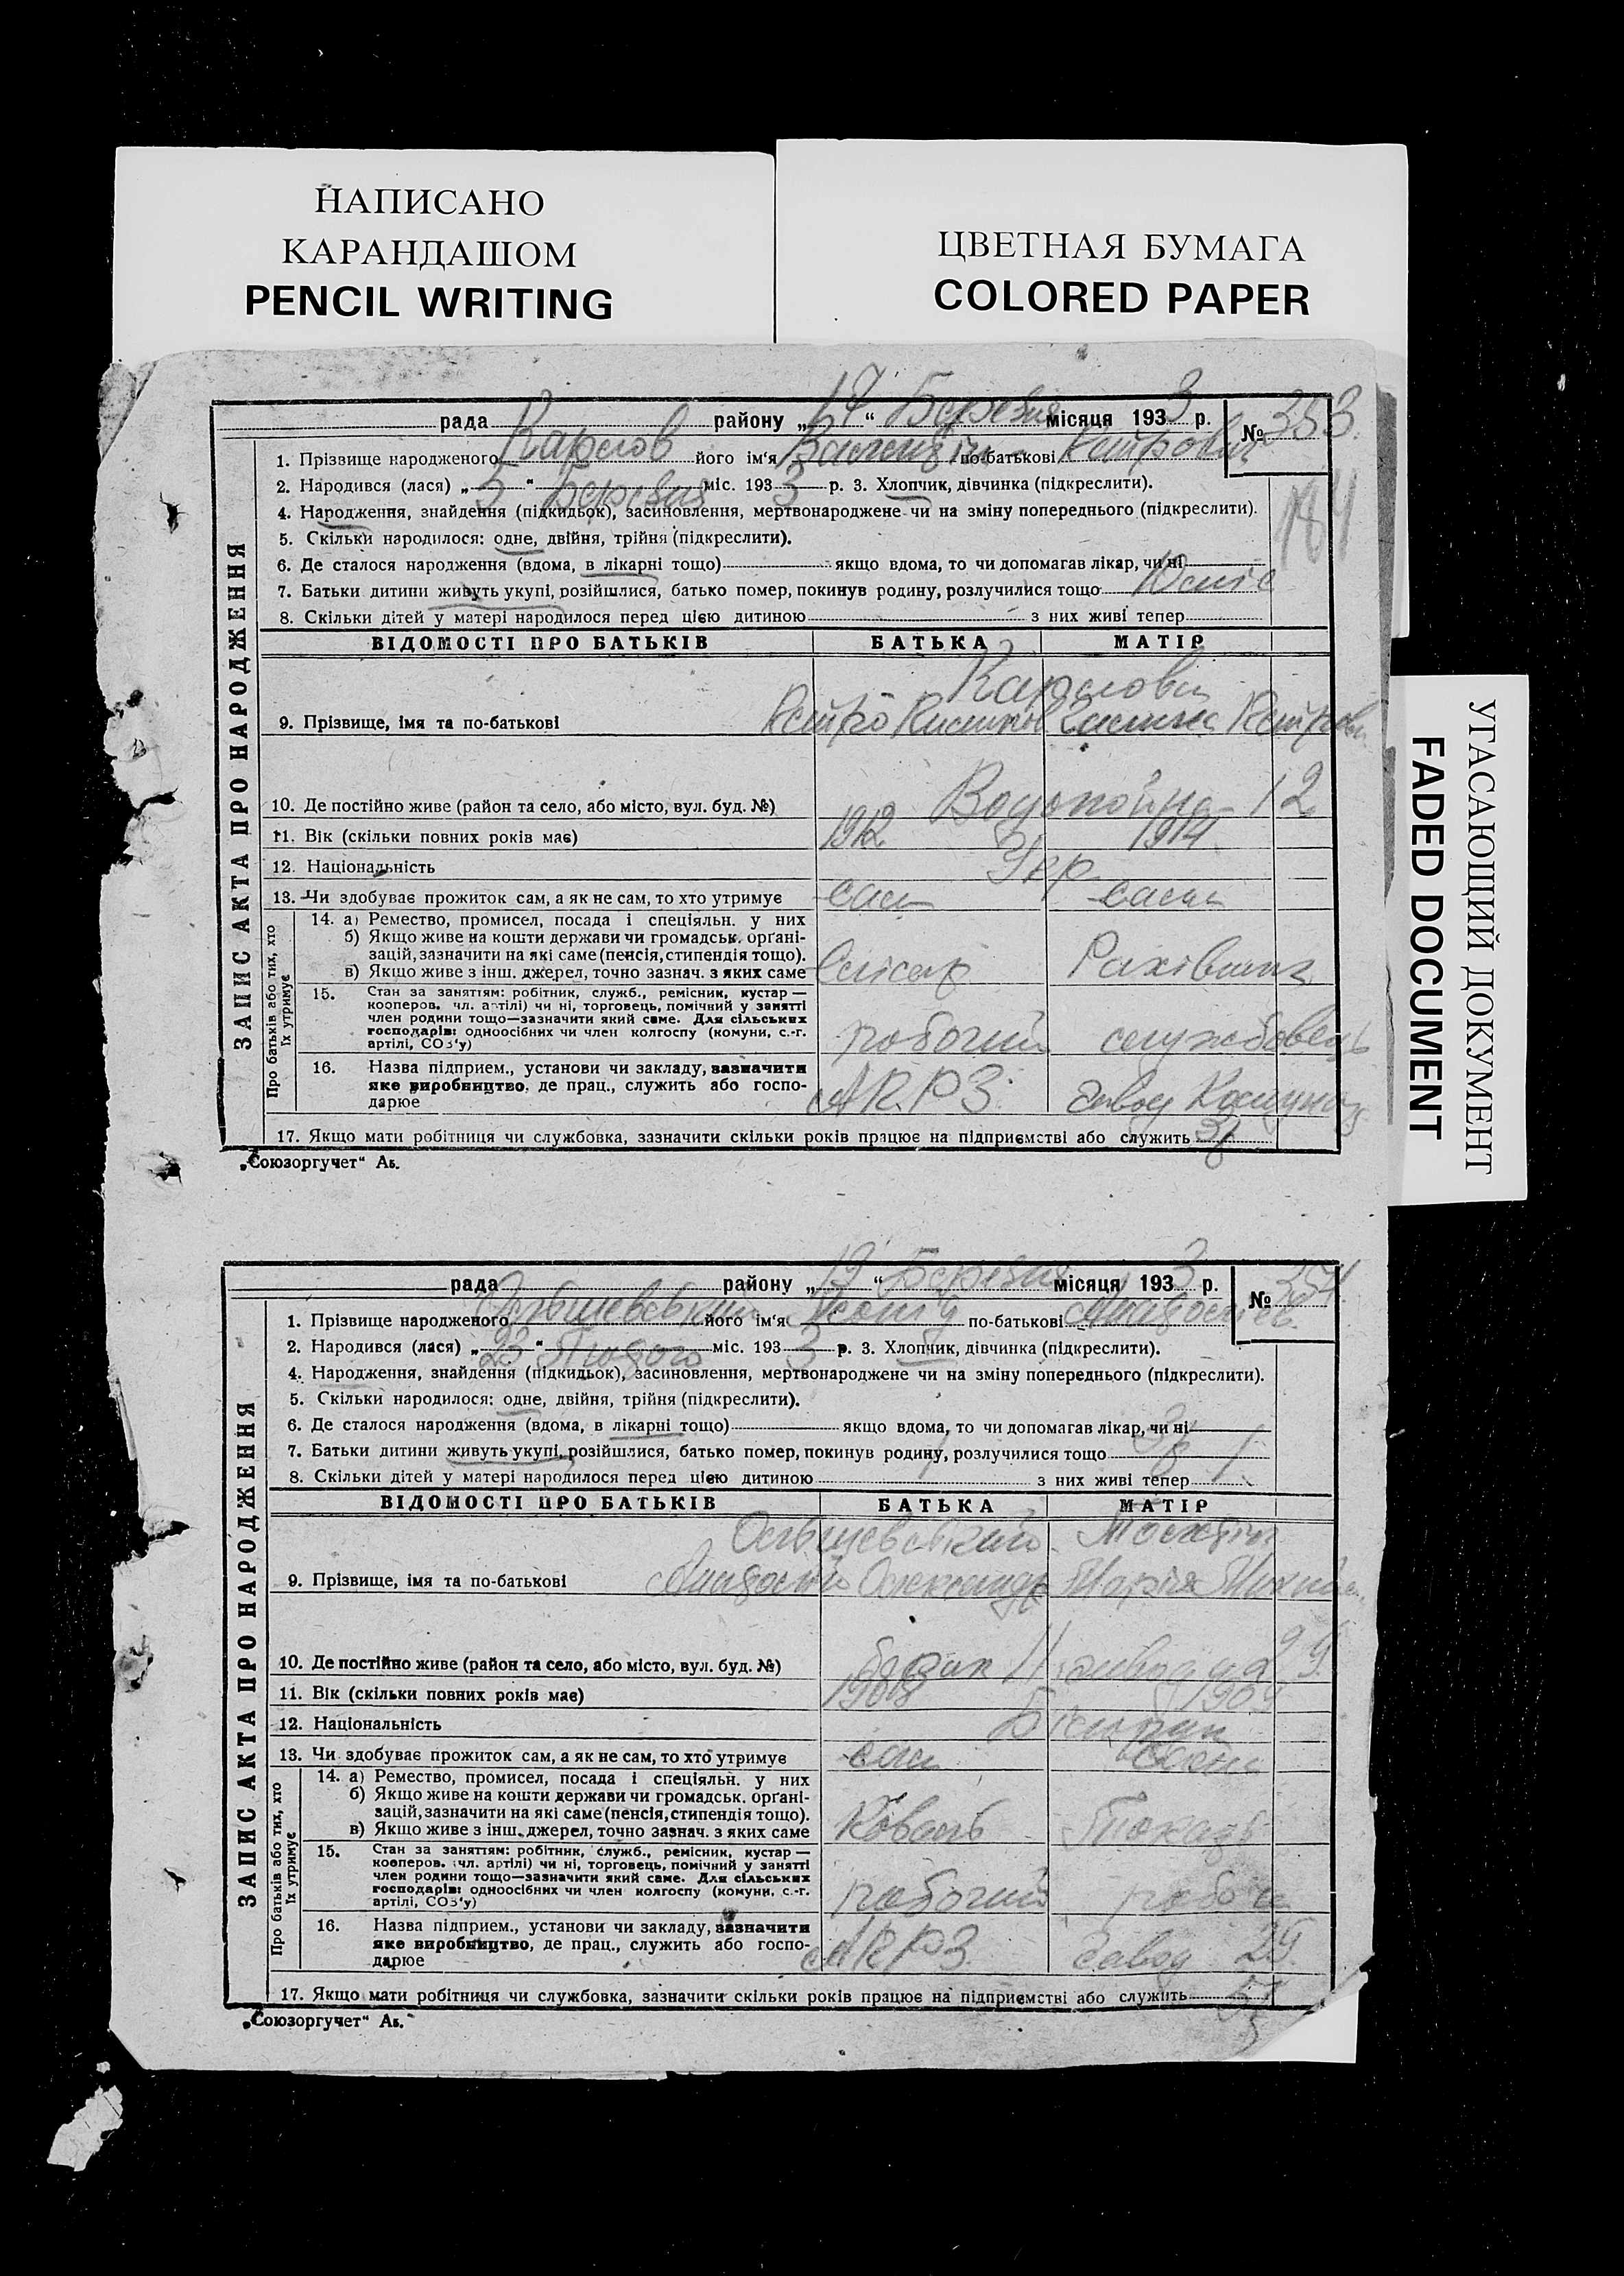 НАПИСАНО
КАРАНДАШОМ
PENCIL WRITING
ЦВЕТНАЯ БУМАГА
COLORED PAPER
УГАСАЮЩИЙ ДОКУМЕНТ
FADED DOCUMENT
ЗАПИС АКТА ПРО НАРОДЖЕННЯ
рада району „17“ Березня місяця 1933 р. № 353.
1. Прізвище народженого Карлов його ім'я Валентін по-батькові Петрович
2. Народився (лася) „5“ Березня міс. 1933 р. 3. Хлопчик, дівчинка (підкреслити).
4. Народження, знайдення (підкидьок), засиновлення, мертвонароджене чи на зміну попереднього (підкреслити).
5. Скільки народилося: одне, двійня, трійня (підкреслити).
6. Де сталося народження (вдома, в лікарні тощо) якщо вдома, то чи допомагав лікар, чи ні
7. Батьки дитини живуть укупі, розійшлися, батько помер, покинув родину, розлучилися тощо
8. Скільки дітей у матері народилося перед цією дитиною з них живі тепер
ВІДОМОСТІ ПРО БАТЬКІВ БАТЬКА МАТІР
Карлови
9. Прізвище, імя та по-батькові Петро
10. Де постійно живе (район та село, або місто, вул. буд. №) Водопойна 12
11. Вік (скільки повних років має) 1912 1914
12. Національність Укр.
13. Чи здобуває прожиток сам, а як не сам, то хто утримує сам сама
Про батьків або тих, хто їх утримує
14. а) Ремество, промисел, посада і спеціяльн. у них
б) Якщо живе на кошти держави чи громадськ. орґані-
зацій, зазначити на які саме (пенсія, стипендія тощо).
в) Якщо живе з інш. джерел, точно зазнач. з яких саме Слісар Рахівник
15. Стан за заняттям: робітник, служб., ремісник, кустар—
кооперов. чл. артілі) чи ні, торговець, помічний у занятті
член родини тощо—зазначити який саме. Для сільських
господарів: одноосібних чи член колгоспу (комуни, с.-г.
артілі, СОЗ'у) робочий службовець
16. Назва підприєм., установи чи закладу, зазначити
яке виробництво, де прац., служить або госпо-
дарює АКРЗ. завод
17. Якщо мати робітниця чи службовка, зазначити скільки років працює на підприємстві або служить 3р
„Союзоргучет“ Аь.
ЗАПИС АКТА ПРО НАРОДЖЕННЯ
рада району „19“ Березня місяця 1933 р. № 354.
1. Прізвище народженого Ольшевський його ім'я по-батькові
2. Народився (лася) „23“ Лютого міс. 1933 р. 3. Хлопчик, дівчинка (підкреслити).
4. Народження, знайдення (підкидьок), засиновлення, мертвонароджене чи на зміну попереднього (підкреслити).
5. Скільки народилося: одне, двійня, трійня (підкреслити).
6. Де сталося народження (вдома, в лікарні тощо) якщо вдома, то чи допомагав лікар, чи ні
7. Батьки дитини живуть укупі, розійшлися, батько помер, покинув родину, розлучилися тощо
8. Скільки дітей у матері народилося перед цією дитиною з них живі тепер
ВІДОМОСТІ ПРО БАТЬКІВ БАТЬКА МАТІР
Ольшевський
9. Прізвище, імя та по-батькові Олександр Марія
10. Де постійно живе (район та село, або місто, вул. буд. №) барак 11
11. Вік (скільки повних років має) 1908 1909
12. Національність
13. Чи здобуває прожиток сам, а як не сам, то хто утримує сам сама
Про батьків або тих, хто їх утримує
14. а) Ремество, промисел, посада і спеціяльн. у них
б) Якщо живе на кошти держави чи громадськ. орґані-
зацій, зазначити на які саме (пенсія, стипендія тощо).
в) Якщо живе з інш. джерел, точно зазнач. з яких саме Коваль Токарь
15. Стан за заняттям: робітник, служб., ремісник, кустар—
кооперов. чл. артілі) чи ні, торговець, помічний у занятті
член родини тощо—зазначити який саме. Для сільських
господарів: одноосібних чи член колгоспу (комуни, с.-г.
артілі, СОЗ'у) робочий
16. Назва підприєм., установи чи закладу, зазначити
яке виробництво, де прац., служить або госпо-
дарює АКРЗ. завод 29.
17. Якщо мати робітниця чи службовка, зазначити скільки років працює на підприємстві або служить
„Союзоргучет“ Аь.